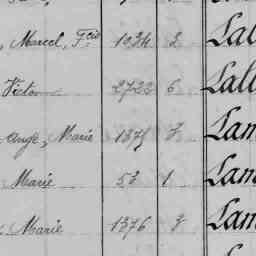 , Marcel, Fcis 1034 2 Lal
Victor 2722 6 Lall
Ange, Marie 1375 7 Lam
Marie 53 1 Lam
Marie 1376 7 Lam